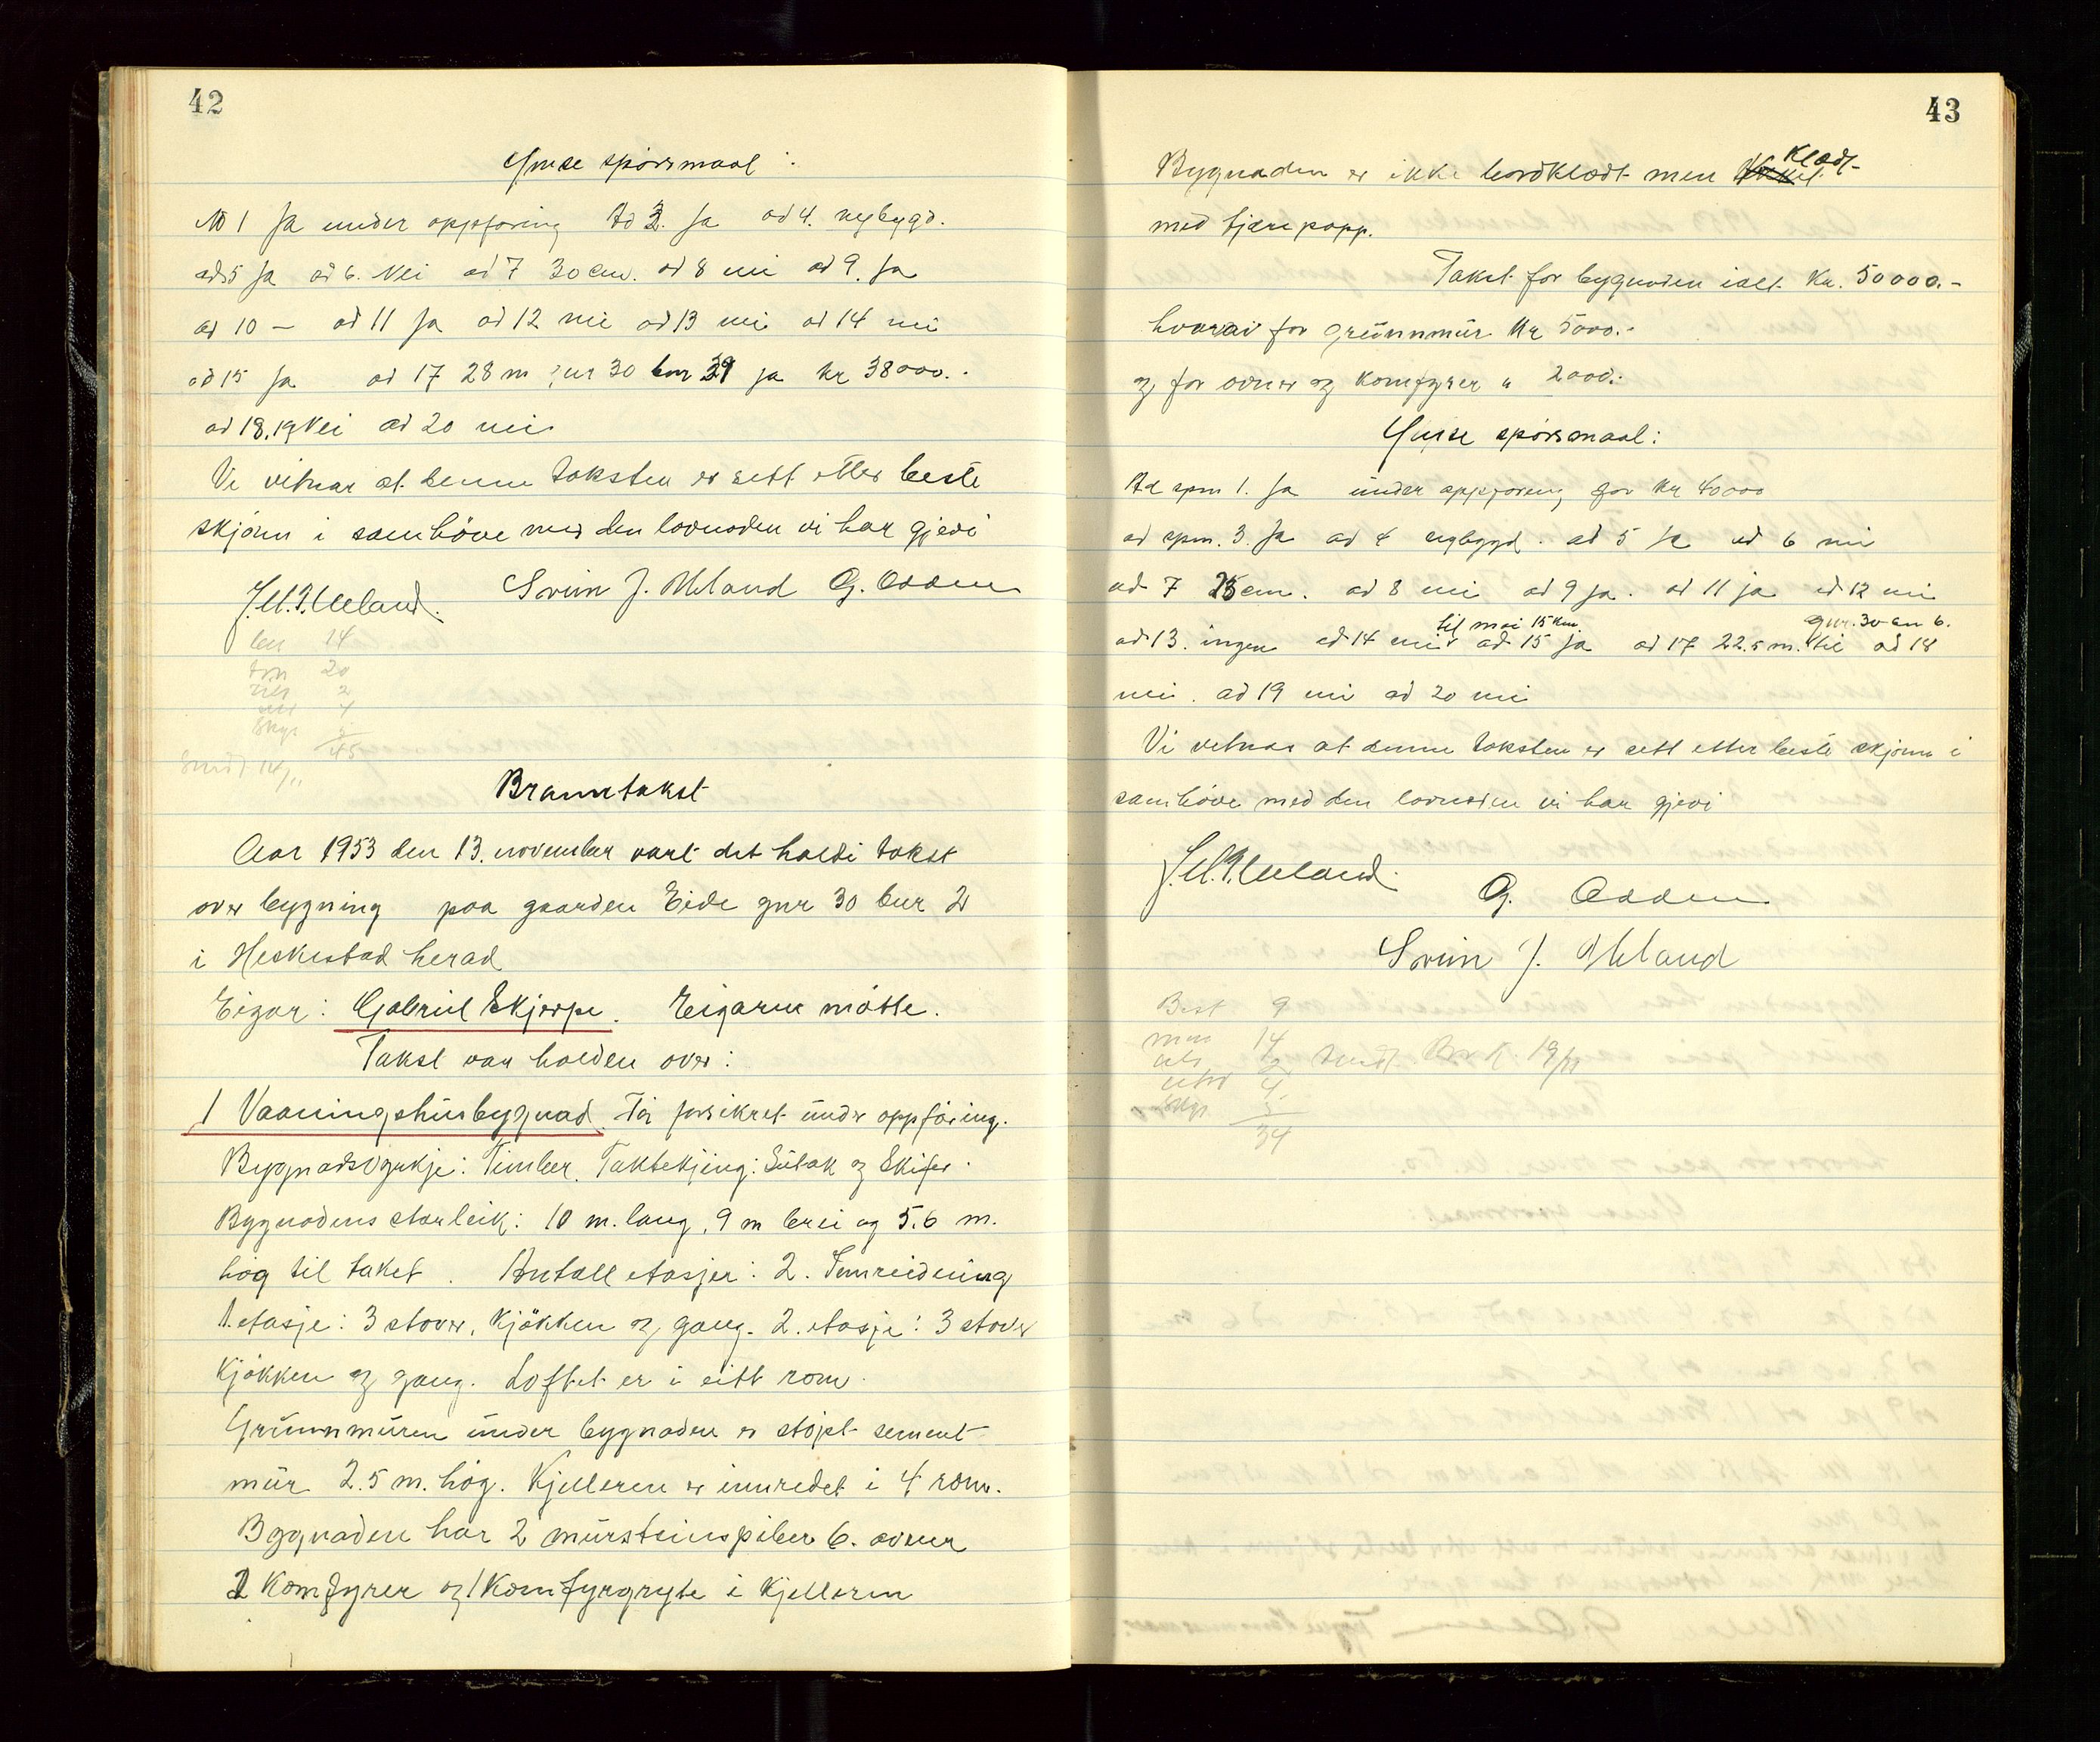 42
Ymse spörsmaal:
Ad 1 Ja under oppföring Ad 3. Ja ad 4. nybygd.
ad 5 Ja ad 6. Nei ad 7 30 cm. ad 8 nei ad 9. Ja
ad 10 – ad 11 Ja ad 12 nei ad 13 nei ad 14 nei
ad 15 Ja ad 17 28 m gnr 30 bnr 39 ja kr 38000.-
ad 18, 19 Nei ad 20 nei
Vi vitnar at denne taksten er sett etter beste
skjönn i samhöve med den lovnaden vi har gjevi
Svein J. Ueland G. Odden
14
20
2
4
Skys 5
45
Sendt 14/11
Branntakst
Aar 1953 den 13. november vart det haldi takst
over bygning paa gaarden Eide gnr 30 bnr 2
i Heskestad herad
Eigar: Gabriel Skjerpe. Eigaren mötte.
Takst var halden over:
1 Vaaningshusbygnad. För forsikret under oppföring.
Bygnadsvyrkje: Timber. Taktekjing: Sutak og Skifer.
Bygnadens storleik: 10 m. lang, 9 m brei og 5.6 m.
hög til taket. Antall etasjer: 2. Innreidning
1. etasje: 3 stover, kjökken og gang. 2. etasje: 3 stover
kjökken og gang. Loftet er i eitt rom.
Grunnmuren under bygnaden er stöpt sement-
mur 2.5 m. hög. Kjelleren er innredet i 4 rom.
Bygnaden har 2 mursteinspiber 6. ovner
2 Komfyrer og 1 Komfyrgryte i kjelleren
43
Bygnaden er ikke bordklædt men klædt
med tjærepapp.
Takst for bygnaden ialt Kr. 50000.-
hvorav for grunnmur Kr 5000.-
og for ovner og komfyrer " 2000.-
Ymse spörsmaal:
Ad spm 1. Ja under oppföring for kr 40000
ad spm. 3. Ja ad 4 nybygd. ad 5 Ja ad 6 nei
ad 7 25 cm. ad 8 nei ad 9 ja. ad 11 ja ad 12 nei
til mai 15 km. gnr. 30 bn 6.
ad 13. ingen ad 14 nei ad 15 ja ad 17 22.5 m. til ad 18
nei. ad 19 nei ad 20 nei
Vi vitnar at denne taksten er sett etter beste skjönn i
samhöve med den lovnaden vi har gjevi
G. Odden
Svein J. Ueland
Best 9
14
2
4
5
34
Sendt 19/11